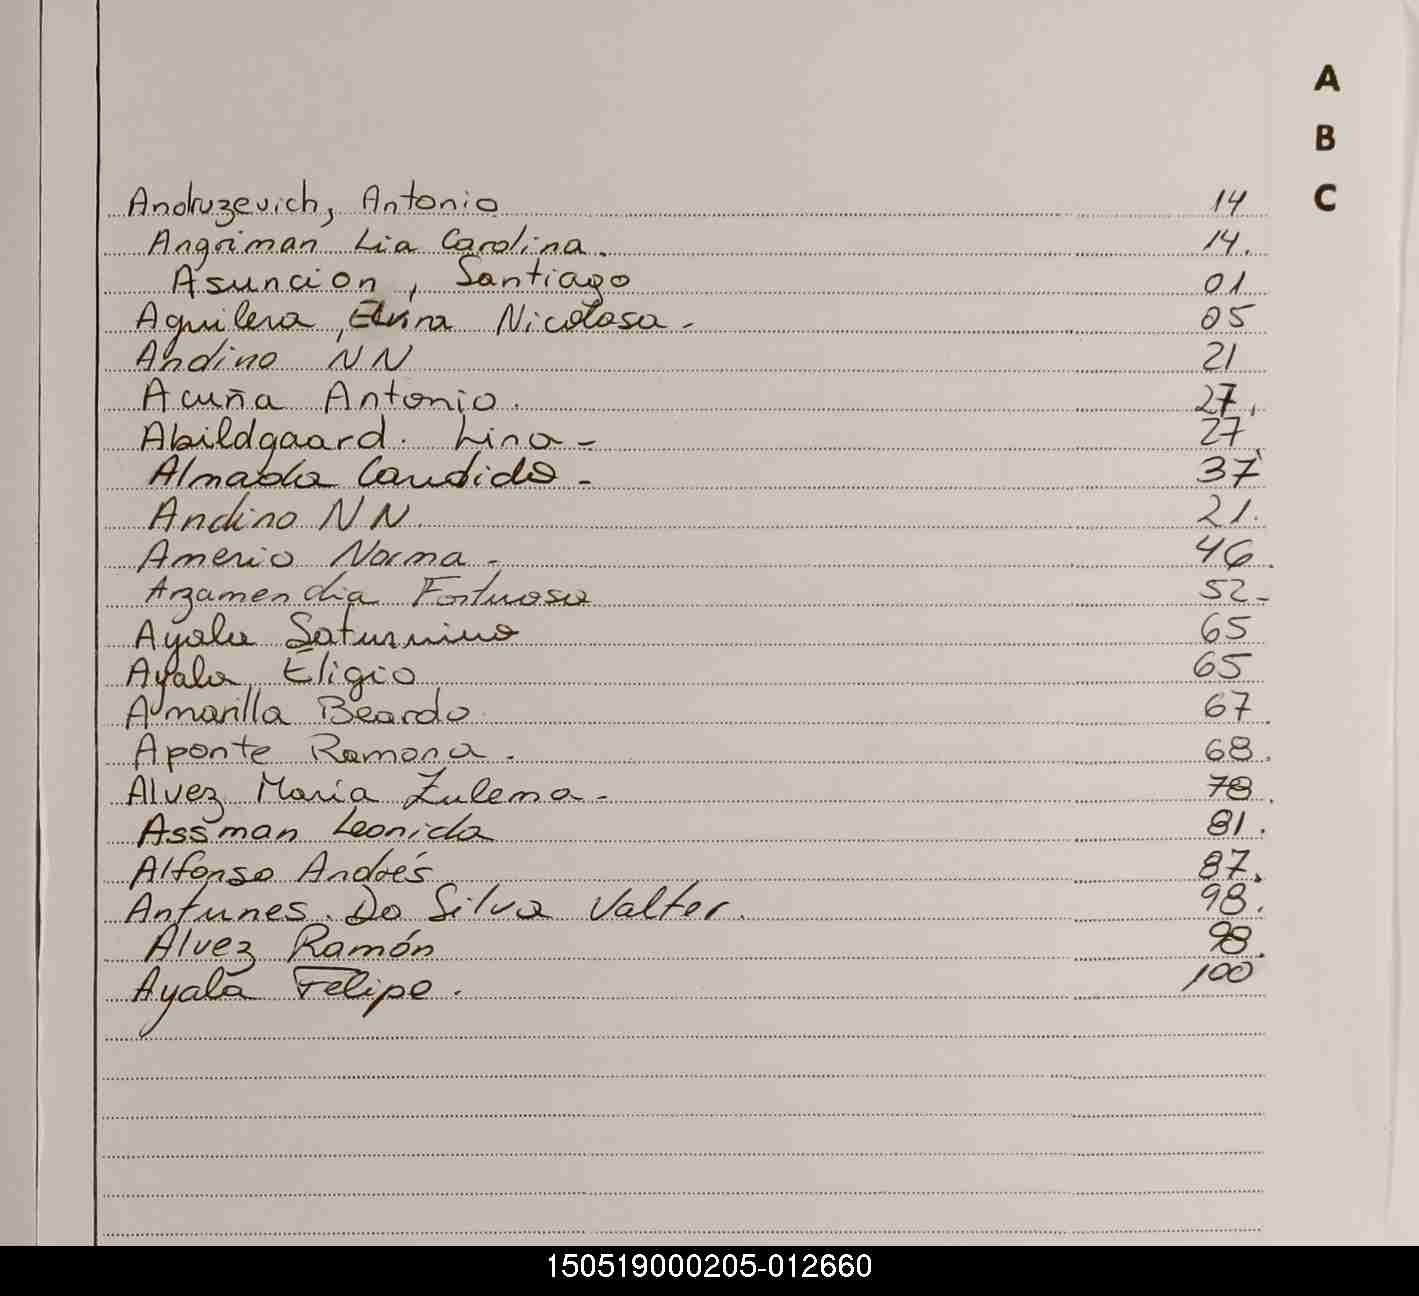 A
B
C
Andruzevich, Antonio 14
Angriman Lia Carolina. 14.
Asuncion, Santiago 01
Aguilera, Elvira Nicolasa - 05
Andino NN 21
Acuña Antonio. 27.
Abildgaard. Lina - 27
Almada Candido - 37
Andino NN. 21.
Amerio Norma - 46.
Azamendia Fortuoso 52-
Ayala Saturnino 65
Ayala Eligio 65
Amarilla Beardo 67.
Aponte Ramona. 68.
Alvez Maria Zulema - 78.
Assman Leonida 81.
Alfonso Andrés 87.
Antunes. Do Silva Valter. 98.
Alvez Ramón 98.
Ayala Felipe. 100
150519000205-012660